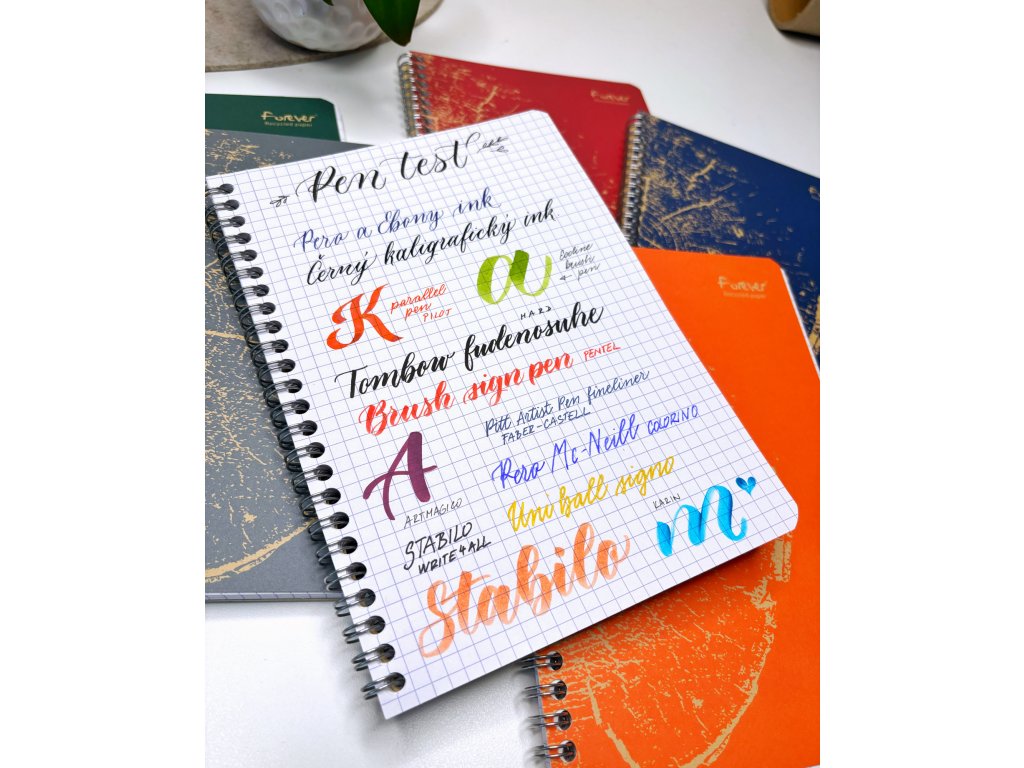 Forever
Recycled paper
Forever
Pen test
Pero a Ebony ink
Černý kaligrafický ink
K parallel pen PILOT
a Ecoline brush pen
HARD
Tombow fudenosuke
Brush sign pen PENTEL
Pitt Artist Pen fineliner
FABER-CASTELL
Pero Mc-Neill COLORINO
A
ARTMAGICO
Uni ball signo
STABILO
WRITE4ALL
KARIN
m
Stabilo
Forever
Recycled paper